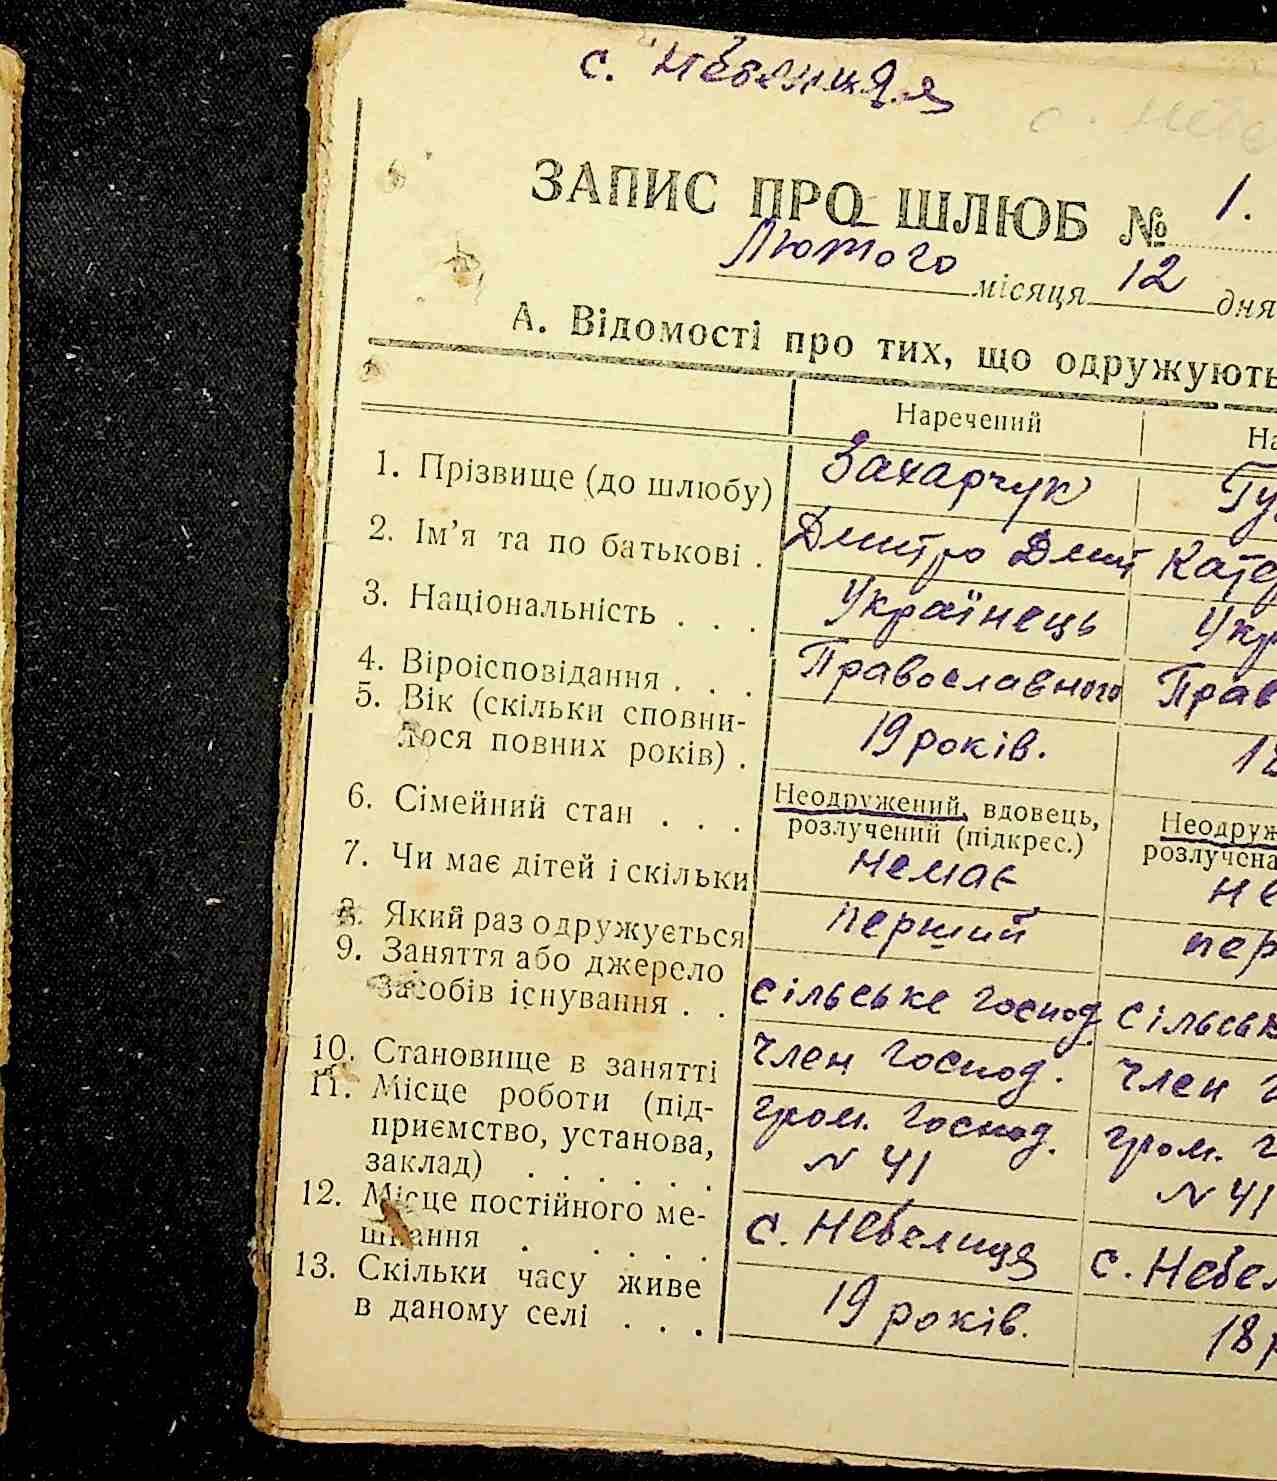 с. Небелиця
с. Небе
ЗАПИС ПРО ШЛЮБ № 1.
Лютого місяця 12 дня
А. Відомості про тих, що одружують
Наречений На
1. Прізвище (до шлюбу) Захарчук Гу
2. Ім'я та по батькові . Дмитро Дмит Катер
3. Національність . . . Українець Укр
4. Віроісповідання . . . Православного Прав
5. Вік (скільки сповни-
лося повних років) . 19 років. 18
6. Сімейний стан . . . Неодружений, вдовець, Неодруж
розлучений (підкрес.) розлучена
7. Чи має дітей і скільки немає не
8. Який раз одружується перший пер
9. Заняття або джерело
засобів існування . . сільське господ. сільськ
10. Становище в занятті член господ. член г
11. Місце роботи (під-
приємство, установа, гром. господ. гром. г
заклад) . . . . . . N 41 N 41
12. Місце постійного ме-
шкання . . . . . с. Небелиця с. Небел
13. Скільки часу живе
в даному селі . . . 19 років. 18 р